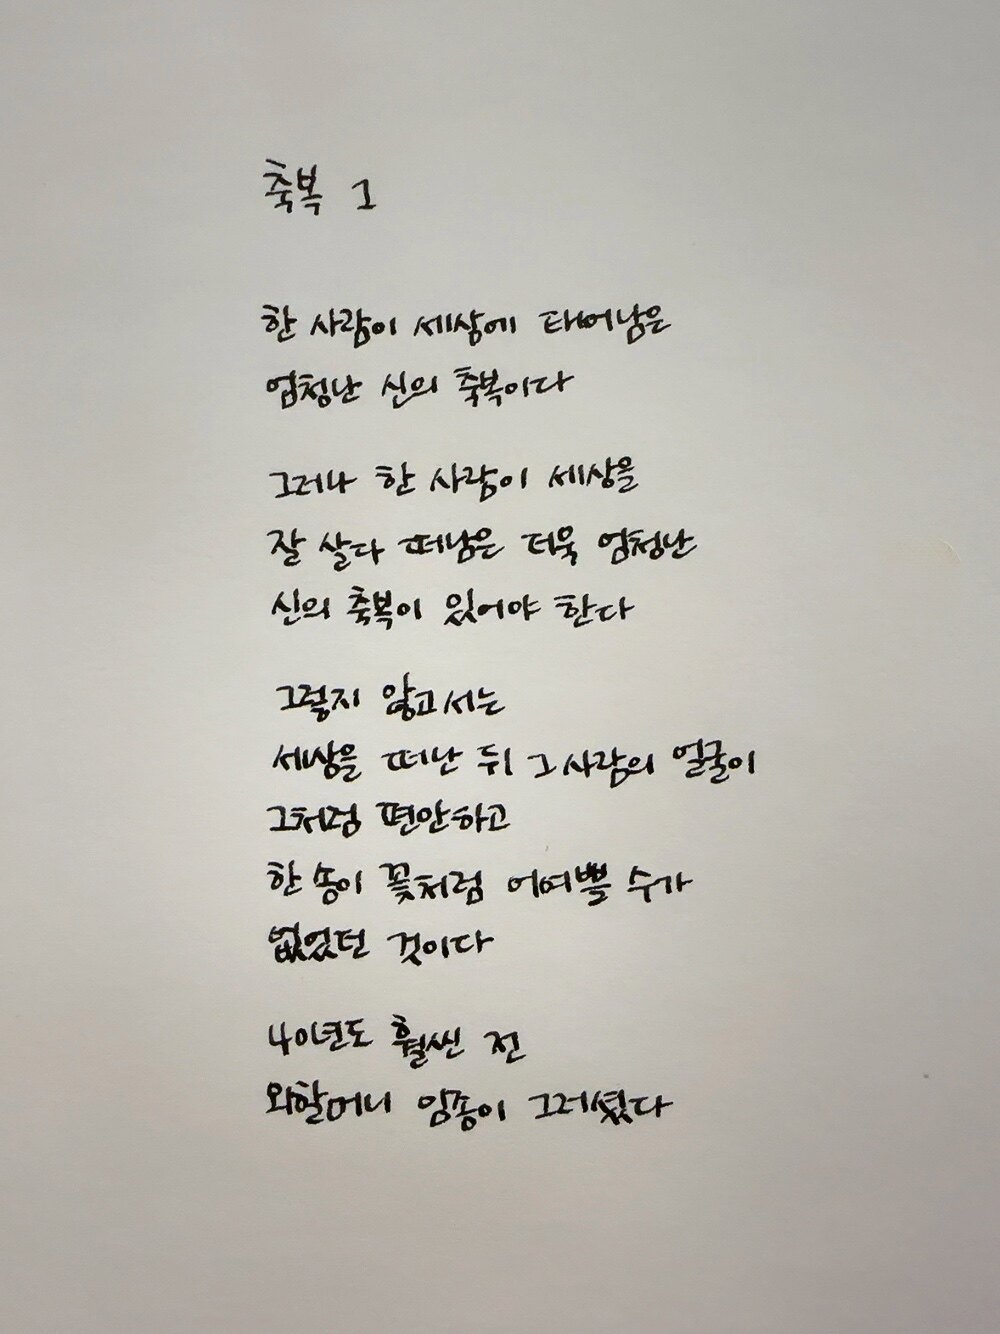 축복 1
한 사람이 세상에 태어남은
엄청난 신의 축복이다
그러나 한 사람이 세상을
잘 살다 떠남은 더욱 엄청난
신의 축복이 있어야 한다
그렇지 않고서는
세상을 떠난 뒤 그 사람의 얼굴이
그처럼 편안하고
한 송이 꽃처럼 어여쁠 수가
없었던 것이다
40년도 훨씬 전
외할머니 임종이 그러셨다